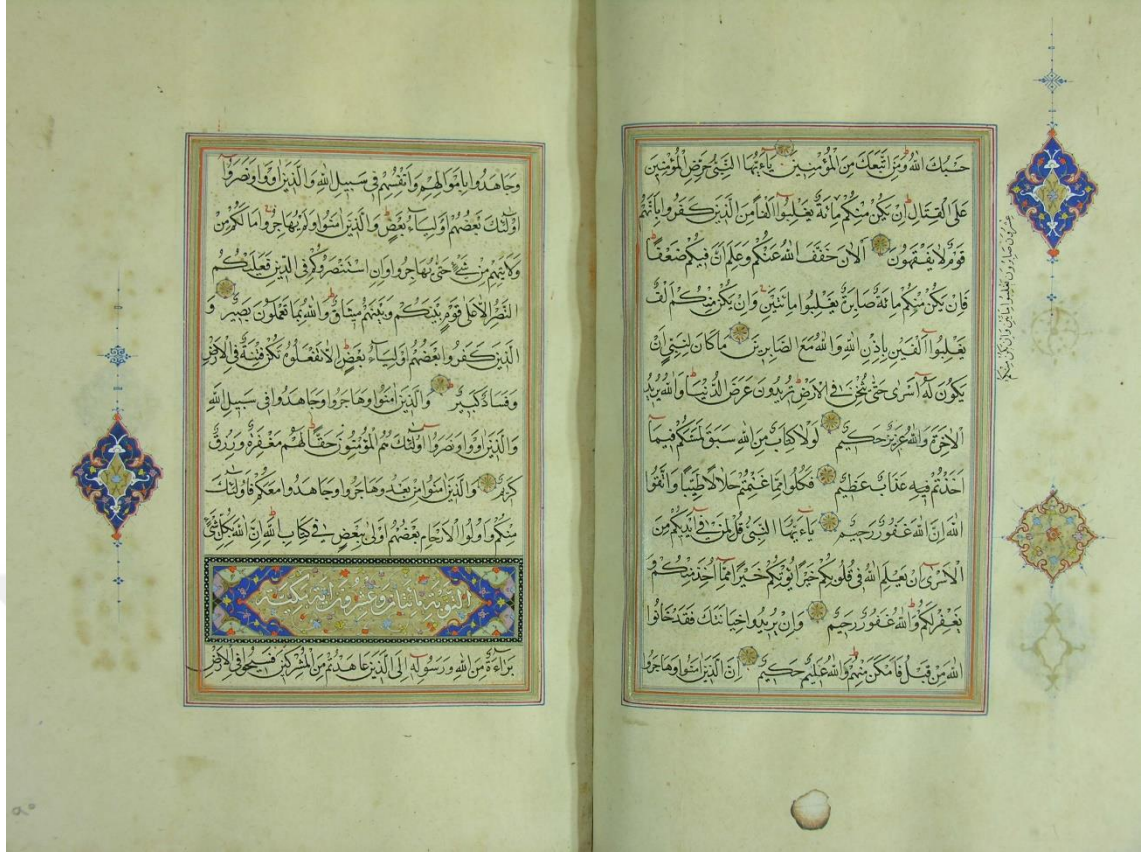 حَسْبُكَ اللهُ وَمَنِ اتَّبَعَكَ مِنَ الْمُؤْمِنِينَ يَاءَيُّهَا النَّبِيُّ حَرِّضِ الْمُؤْمِنِينَ
عَلَى الْقِتَالِ اِنْ يَكُنْ مِنْكُمْ مِائَةٌ يَغْلِبُوا اَلْفًا مِنَ الَّذِينَ كَفَرُوا بِاَنَّهُمْ
قَوْمٌ لَا يَفْقَهُونَ اَلْاٰنَ خَفَّفَ اللهُ عَنْكُمْ وَعَلِمَ اَنَّ فِيكُمْ ضَعْفًا
فَاِنْ يَكُنْ مِنْكُمْ مِائَةٌ صَابِرَةٌ يَغْلِبُوا مِائَتَيْنِ وَاِنْ يَكُنْ مِنْكُمْ اَلْفٌ
يَغْلِبُوا اَلْفَيْنِ بِاِذْنِ اللهِ وَاللهُ مَعَ الصَّابِرِينَ مَا كَانَ لِنَبِيٍّ اَنْ
يَكُونَ لَهُ اَسْرٰى حَتّٰى يُثْخِنَ فِى الْاَرْضِ تُرِيدُونَ عَرَضَ الدُّنْيَا وَاللهُ يُرِيدُ
الْاٰخِرَةَ وَاللهُ عَزِيزٌ حَكِيمٌ لَوْلَا كِتَابٌ مِنَ اللهِ سَبَقَ لَمَسَّكُمْ فِيمَا
اَخَذْتُمْ فِيهِ عَذَابٌ عَظِيمٌ فَكُلُوا مِمَّا غَنِمْتُمْ حَلَالًا طَيِّبًا وَاتَّقُوا
اللهَ اِنَّ اللهَ غَفُورٌ رَحِيمٌ يَاءَيُّهَا النَّبِيُّ قُلْ لِمَنْ فِى اَيْدِيكُمْ مِنَ
الْاَسْرٰى اِنْ يَعْلَمِ اللهُ فِى قُلُوبِكُمْ خَيْرًا يُؤْتِكُمْ خَيْرًا مِمَّا اُخِذَ مِنْكُمْ وَ
يَغْفِرْ لَكُمْ وَاللهُ غَفُورٌ رَحِيمٌ وَاِنْ يُرِيدُوا خِيَانَتَكَ فَقَدْ خَانُوا
اللهَ مِنْ قَبْلُ فَاَمْكَنَ مِنْهُمْ وَاللهُ عَلِيمٌ حَكِيمٌ اِنَّ الَّذِينَ اٰمَنُوا وَهَاجَرُوا
عِشْرُونَ صَابِرُونَ يَغْلِبُوا مِائَتَيْنِ وَاِنْ يَكُنْ مِنْكُمْ
وَجَاهَدُوا بِاَمْوَالِهِمْ وَاَنْفُسِهِمْ فِى سَبِيلِ اللهِ وَالَّذِينَ اٰوَوْا وَنَصَرُوا
اُولٰئِكَ بَعْضُهُمْ اَوْلِيَاءُ بَعْضٍ وَالَّذِينَ اٰمَنُوا وَلَمْ يُهَاجِرُوا مَا لَكُمْ مِنْ
وَلَايَتِهِمْ مِنْ شَىْءٍ حَتّٰى يُهَاجِرُوا وَاِنِ اسْتَنْصَرُوكُمْ فِى الدِّينِ فَعَلَيْكُمُ
النَّصْرُ اِلَّا عَلٰى قَوْمٍ بَيْنَكُمْ وَبَيْنَهُمْ مِيثَاقٌ وَاللهُ بِمَا تَعْمَلُونَ بَصِيرٌ وَ
الَّذِينَ كَفَرُوا بَعْضُهُمْ اَوْلِيَاءُ بَعْضٍ اِلَّا تَفْعَلُوهُ تَكُنْ فِتْنَةٌ فِى الْاَرْضِ
وَفَسَادٌ كَبِيرٌ وَالَّذِينَ اٰمَنُوا وَهَاجَرُوا وَجَاهَدُوا فِى سَبِيلِ اللهِ
وَالَّذِينَ اٰوَوْا وَنَصَرُوا اُولٰئِكَ هُمُ الْمُؤْمِنُونَ حَقًّا لَهُمْ مَغْفِرَةٌ وَرِزْقٌ
كَرِيمٌ وَالَّذِينَ اٰمَنُوا مِنْ بَعْدُ وَهَاجَرُوا وَجَاهَدُوا مَعَكُمْ فَاُولٰئِكَ
مِنْكُمْ وَاُولُوا الْاَرْحَامِ بَعْضُهُمْ اَوْلٰى بِبَعْضٍ فِى كِتَابِ اللهِ اِنَّ اللهَ بِكُلِّ شَىْءٍ
التوبة وعشرون اية
بَرَاءَةٌ مِنَ اللهِ وَرَسُولِهِ اِلَى الَّذِينَ عَاهَدْتُمْ مِنَ الْمُشْرِكِينَ فَسِيحُوا فِى الْاَرْضِ